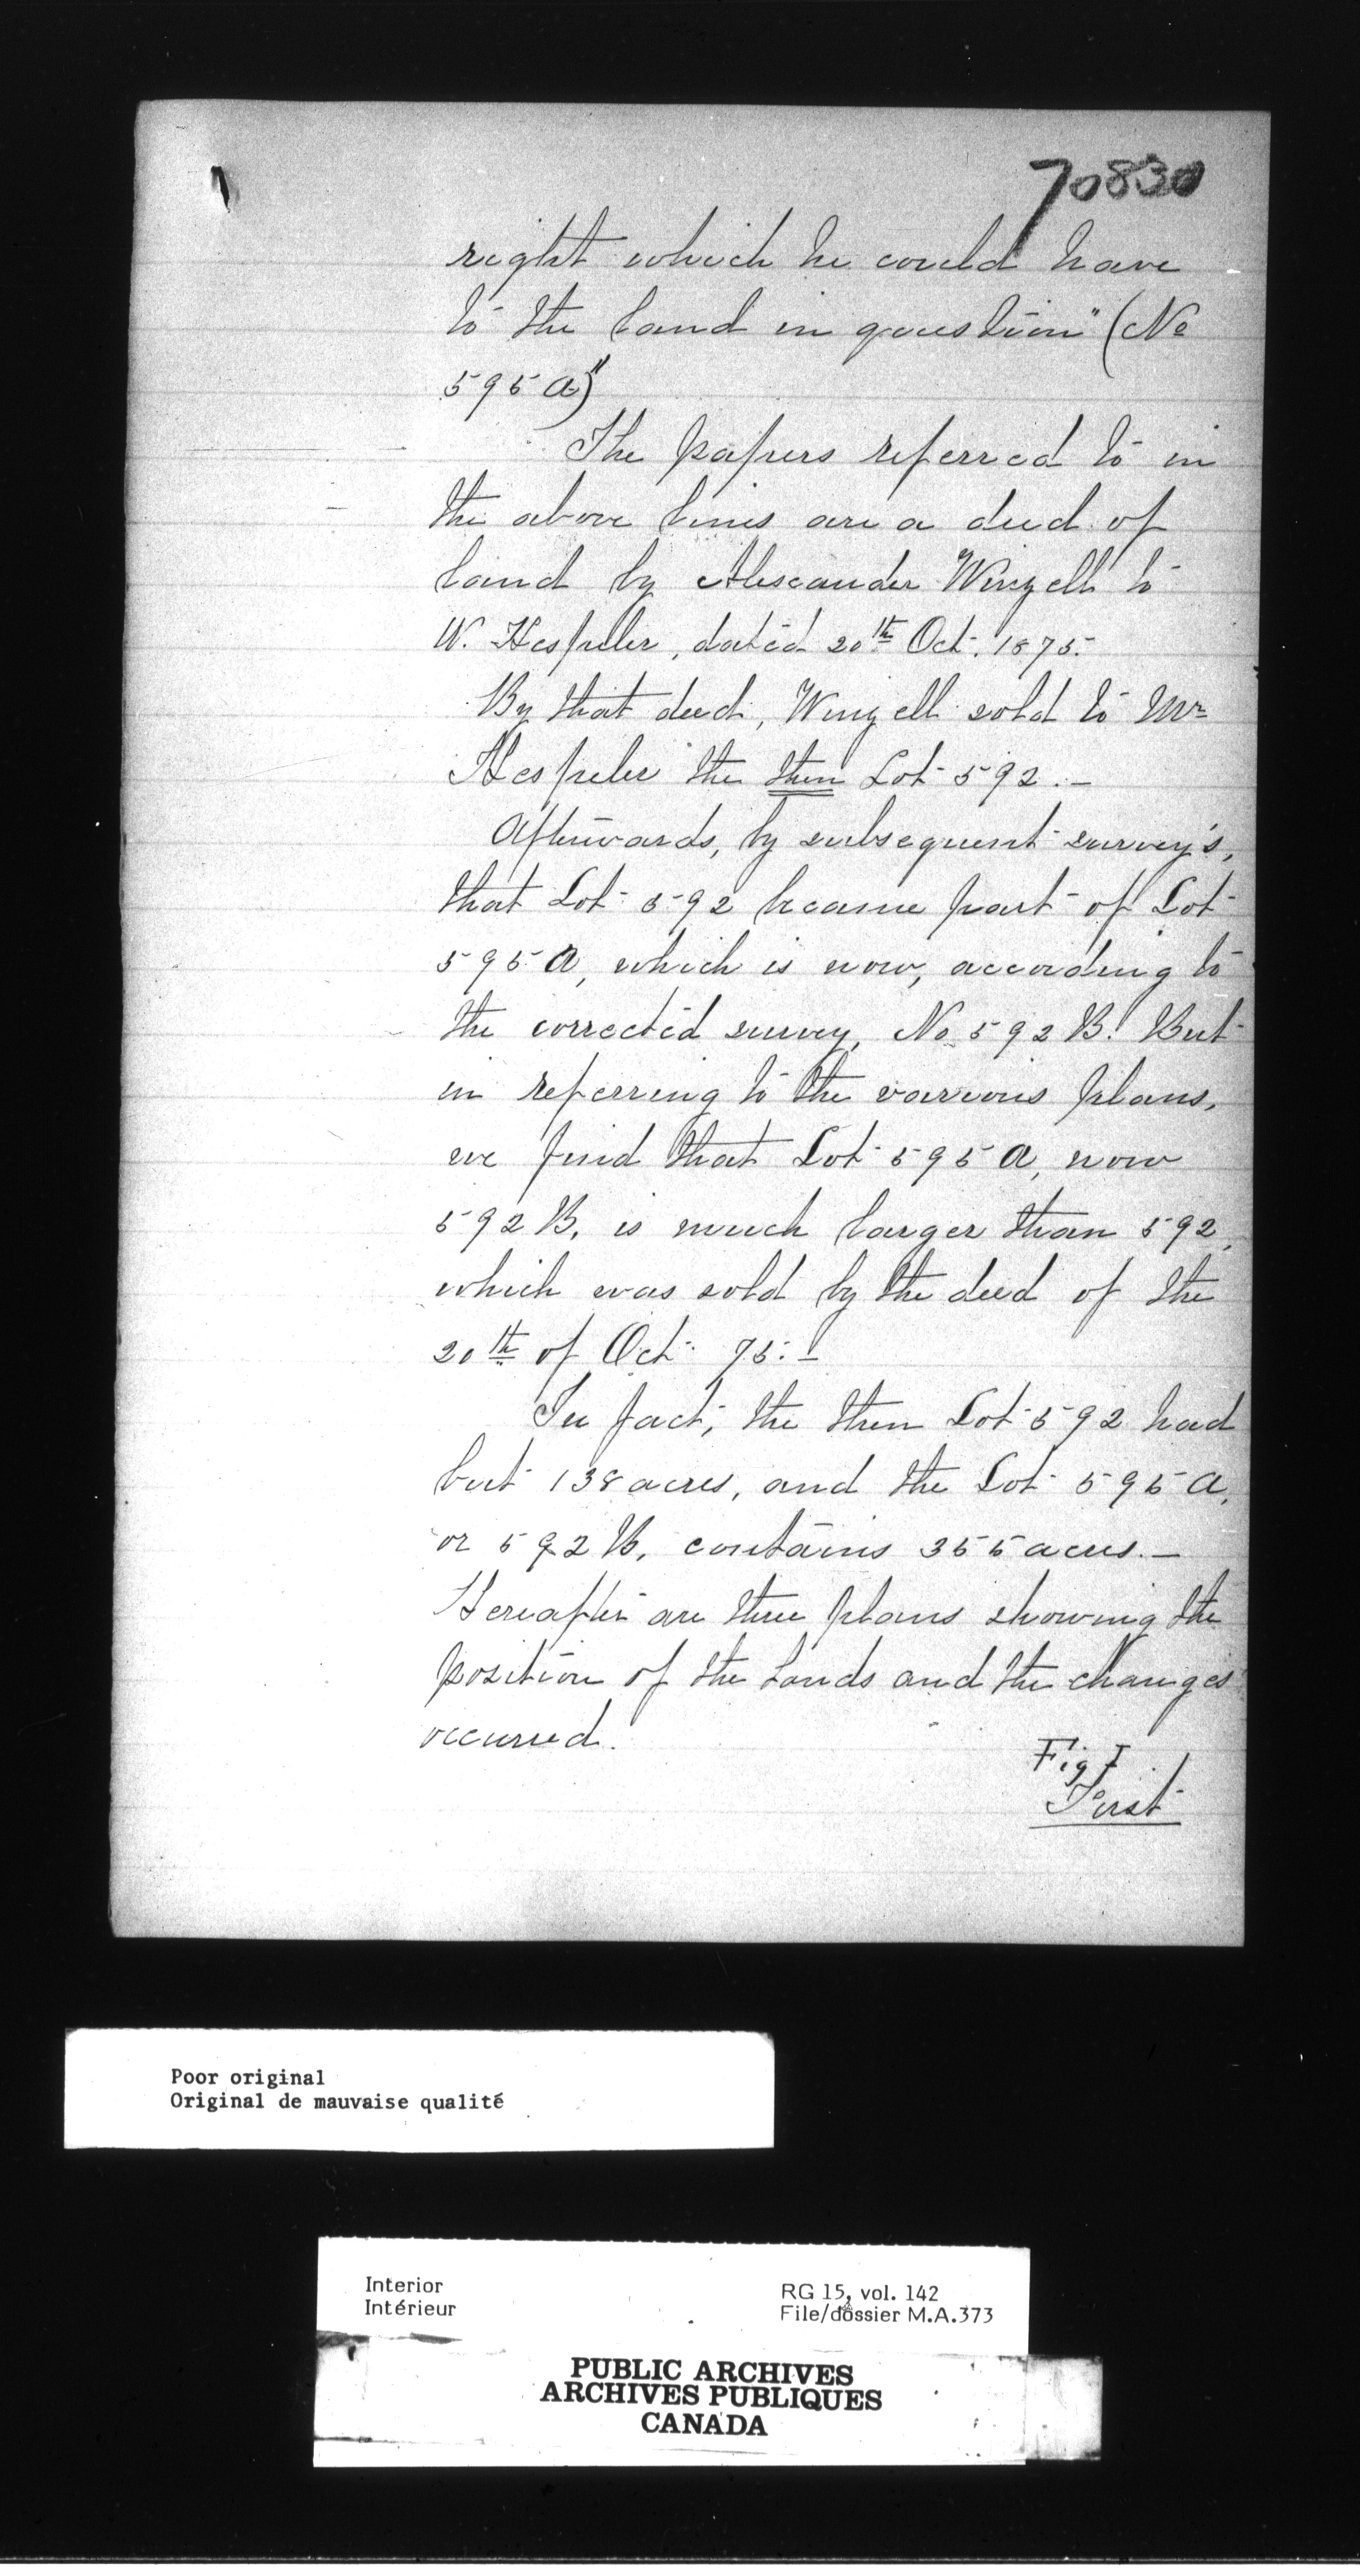 70830
right which he could have
to the land in question" (No
595 A)"
The papers referred to in
the above lines are a deed of
land by Alexander Winzell to
W. Hespeler, dated 20th Oct. 1875.
By that deed, Winzell sold to Mr
Hespeler the then Lot 592.—
Afterwards, by subsequent survey's,
that Lot 592 became part of Lot
595 A, which is now, according to
the corrected survey, No 592 B. But
in referring to the various plans,
we find that Lot 595 A, now
592 B, is much larger than 592,
which was sold by the deed of the
20th of Oct. 75.—
In fact, the then Lot 592 had
but 138 acres, and the Lot 595 A,
or 592 B, contains 355 acres.—
Hereafter are three plans showing the
position of the lands and the changes
occurred.
Fig I
First
Poor original
Original de mauvaise qualité
Interior
Intérieur
RG 15, vol. 142
File/dossier M.A.373
PUBLIC ARCHIVES
ARCHIVES PUBLIQUES
CANADA